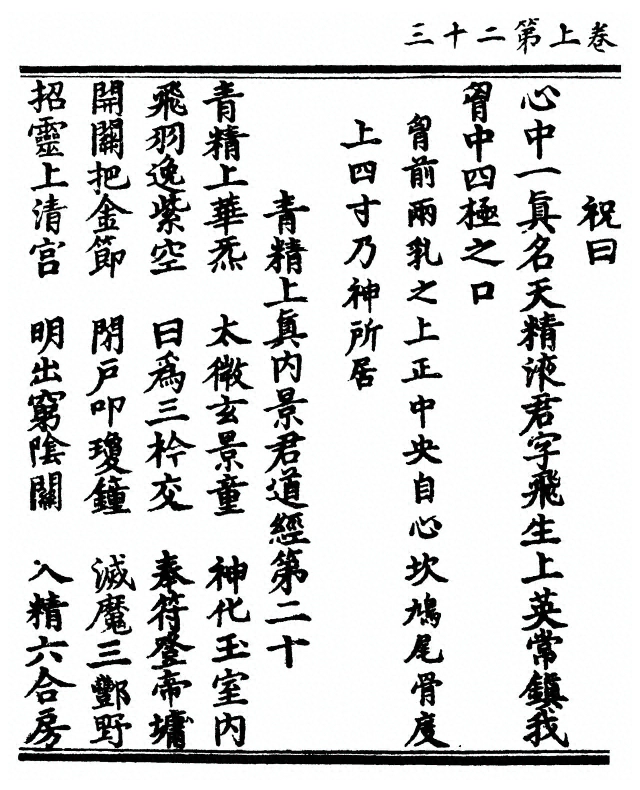 卷上第二十三
祝曰
心中一眞名天精液君字飛生上英常鎮我
胷中四極之口
胷前兩乳之上正中央自心坎鳩尾骨度
上四寸乃神所居
青精上眞內景君道經第二十
青精上華炁 太微玄景童 神化玉室內
飛羽逸紫空 曰爲三衿交 奉符登帝墉
開關把金節 閉戶叩瓊鐘 滅魔三酆野
招靈上清宮 明出窮陰關 入精六合房